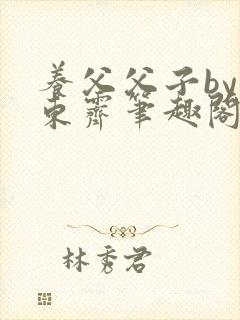 養父父子by
東霽筆趣閣
林秀君